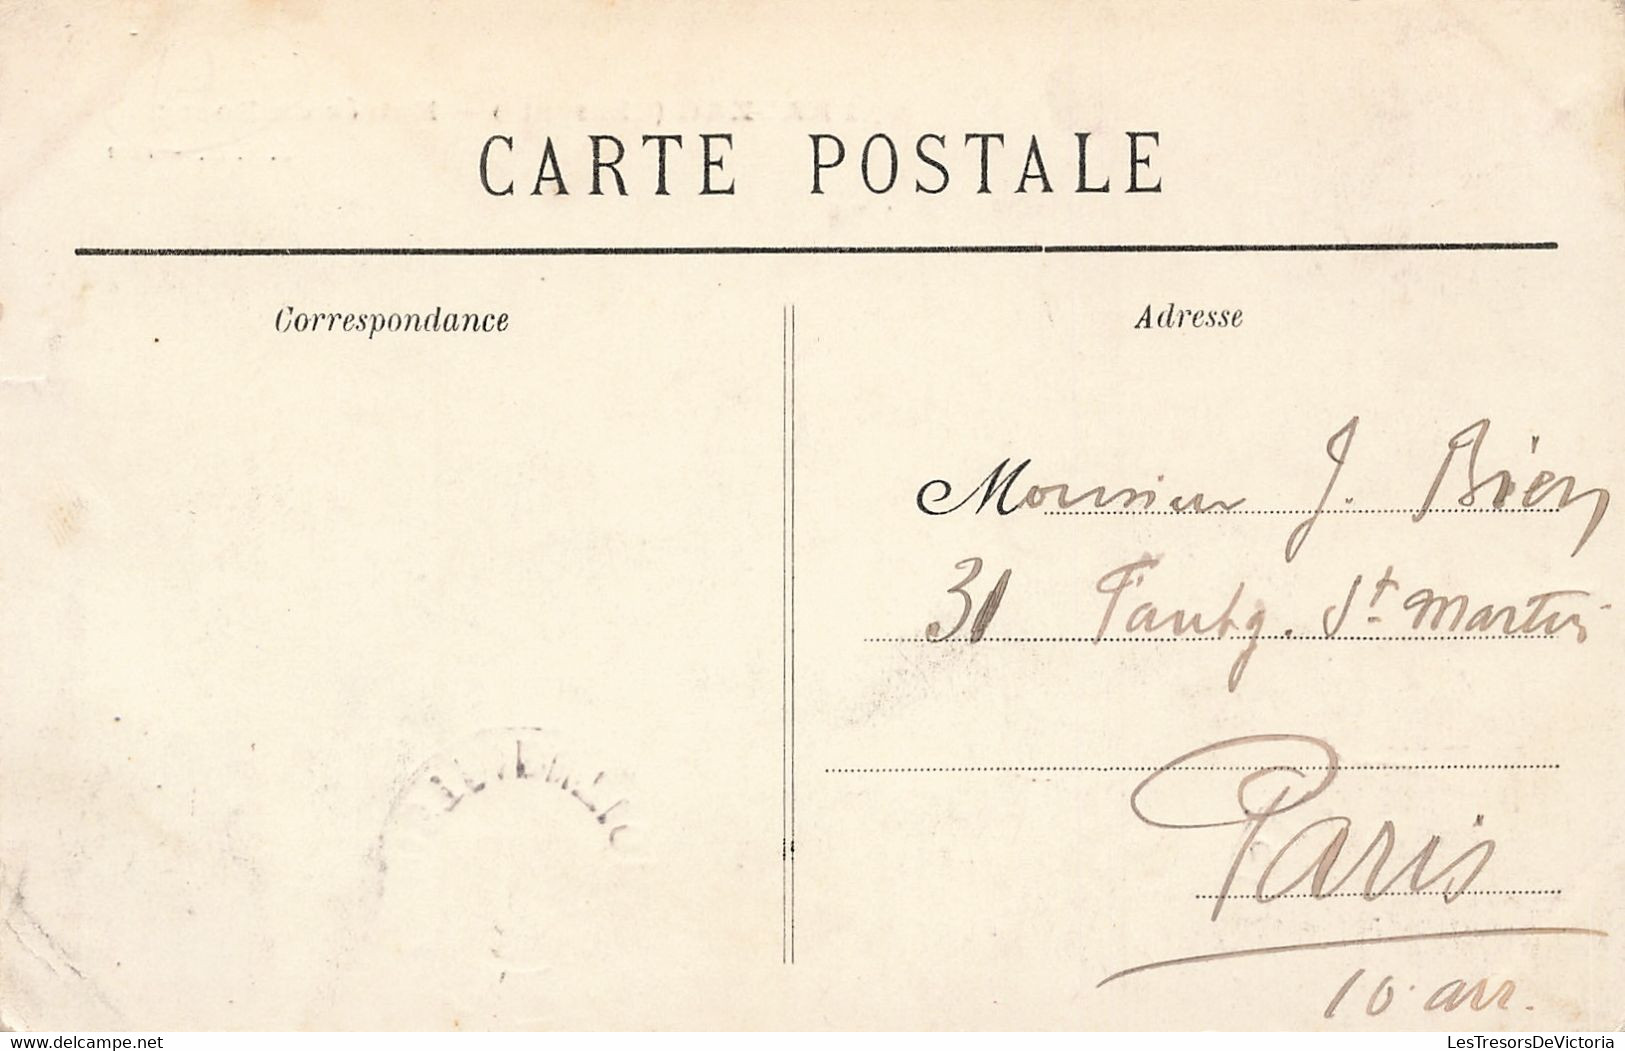 CARTE POSTALE
Correspondance
Adresse
Monsieur J. Bien
31 Faubg. St Martin
Paris
10 arr.
delcampe.net
LesTresorsDeVictoria